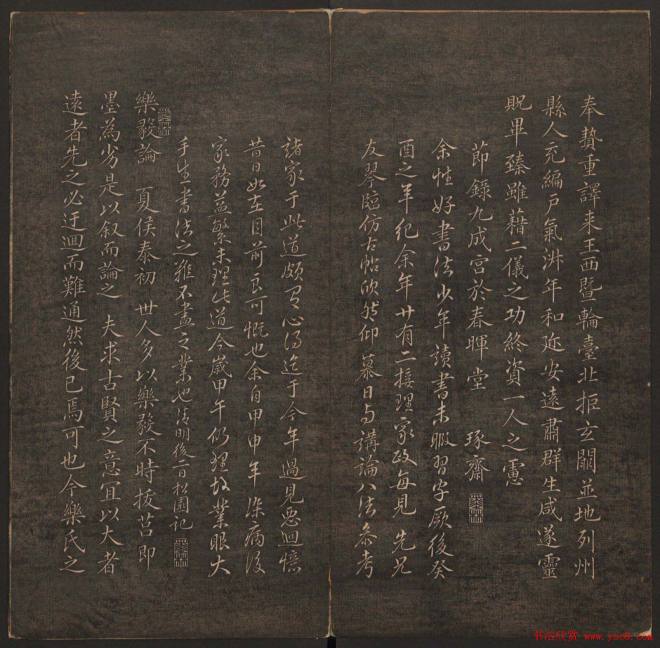 奉贄重譯来王西暨輪臺北拒玄闕並地列州
縣人充編戶氣淋年和延安遠肅群生咸遂靈
貺畢臻雖藉二儀之功終資一人之慮
節錄九成宮於春暉堂 琢齋
余性好書法少年讀書未暇習字厥後癸
酉之年纪余年廿有二接理家政每見先兄
友琴臨仿古帖欣然仰慕日与講論八法參考
諸家于此道頗有心得迄于今年過見惡迴憶
昔日如在目前良可慨也余自甲申年染病後
家務益繁未理此道今歲甲午仍理故業眼大
手生書法之難不盡之業也清明後一日松園記
樂毅論 夏侯泰初 世人多以樂毅不時拔莒即
墨為劣是以叙而論之 夫求古賢之意宜以大者
遠者先之必迂迴而難通然後已焉可也今樂氏之
书法欣赏 www.yac8.com